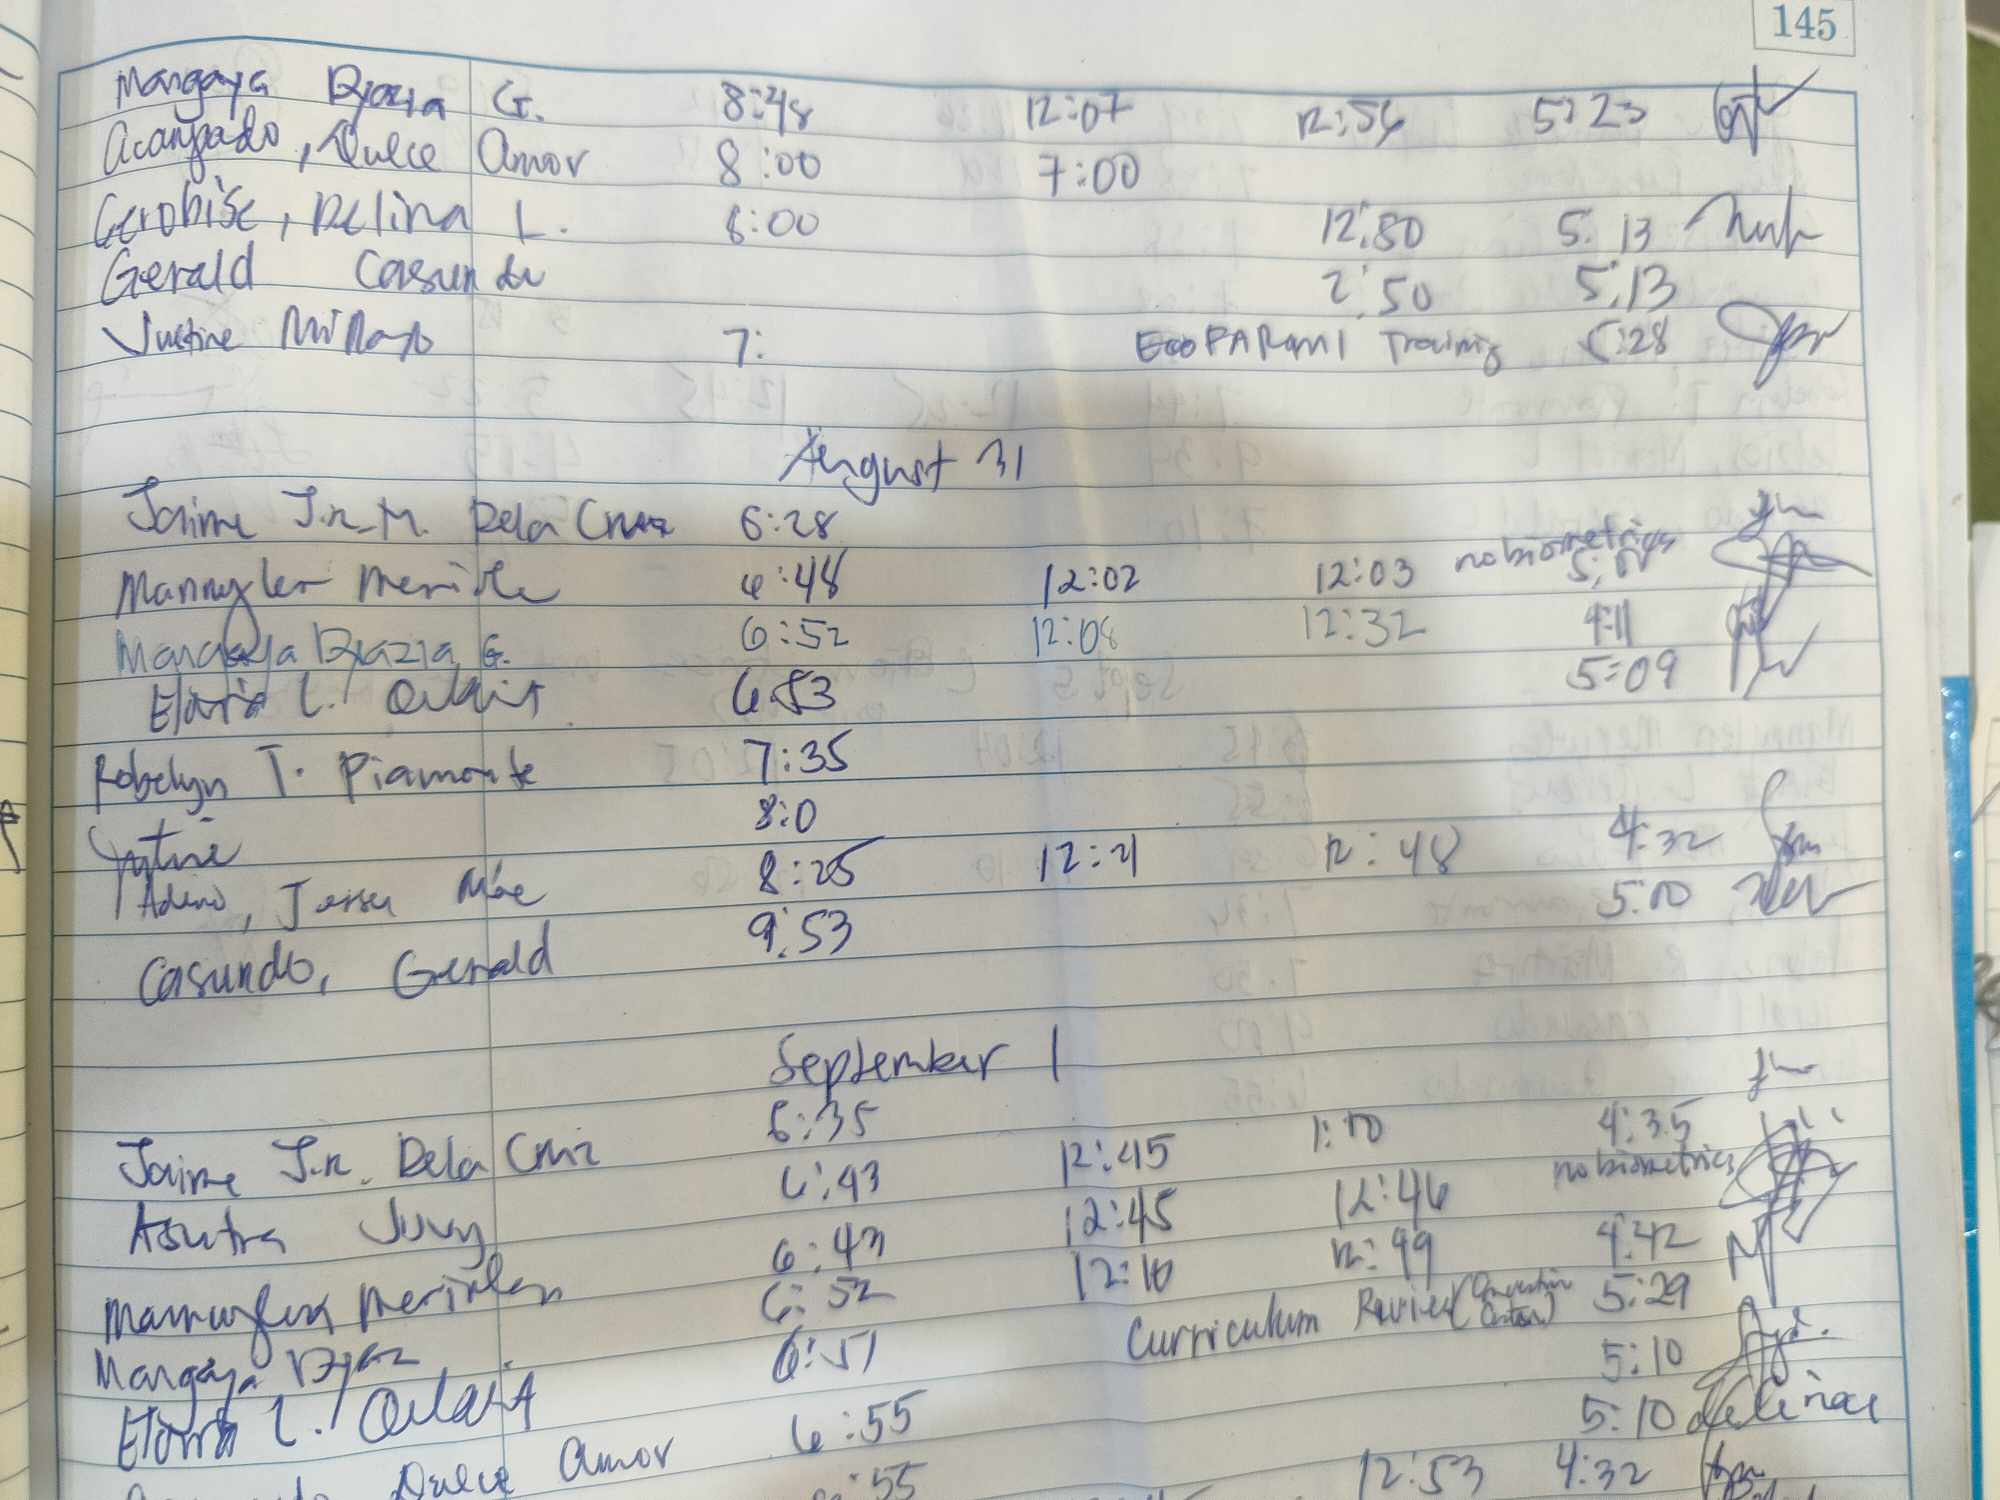 145
Mangaya Dyazia G. 8:48 12:07 12:56 5:23
Acangado, Dulce Amor 8:00 7:00
Gerobise, Delina L. 8:00 12:80 5:13
Gerald Casundo 2:50 5:13
Justine 7: EcoPARami Training 5:28
August 31
Jaime Jr. M. Dela Cruz 6:28
Mannylen Merinle 6:48 12:02 12:03 no biometrics
Mangaya Dyazia G. 6:52 12:08 12:32 4:11
L. 6:53 5:09
Robelyn T. Piamonte 7:35
Justine 8:0
Adeno, Mae 8:25 12:21 12:48 4:32
Casundo, Gerald 9:53 5:00
September 1
Jaime Jr. Dela Cruz 6:35
Asutra Juvy 6:43 12:45 1:10 4:35
Merinlen 6:43 12:45 12:46 no biometrics
Mangaya 6:52 12:10 12:49 4:42
L. 6:51 Curriculum Review 5:29
Dulce Amor 6:55 5:10
:55 5:10
12:53 4:32